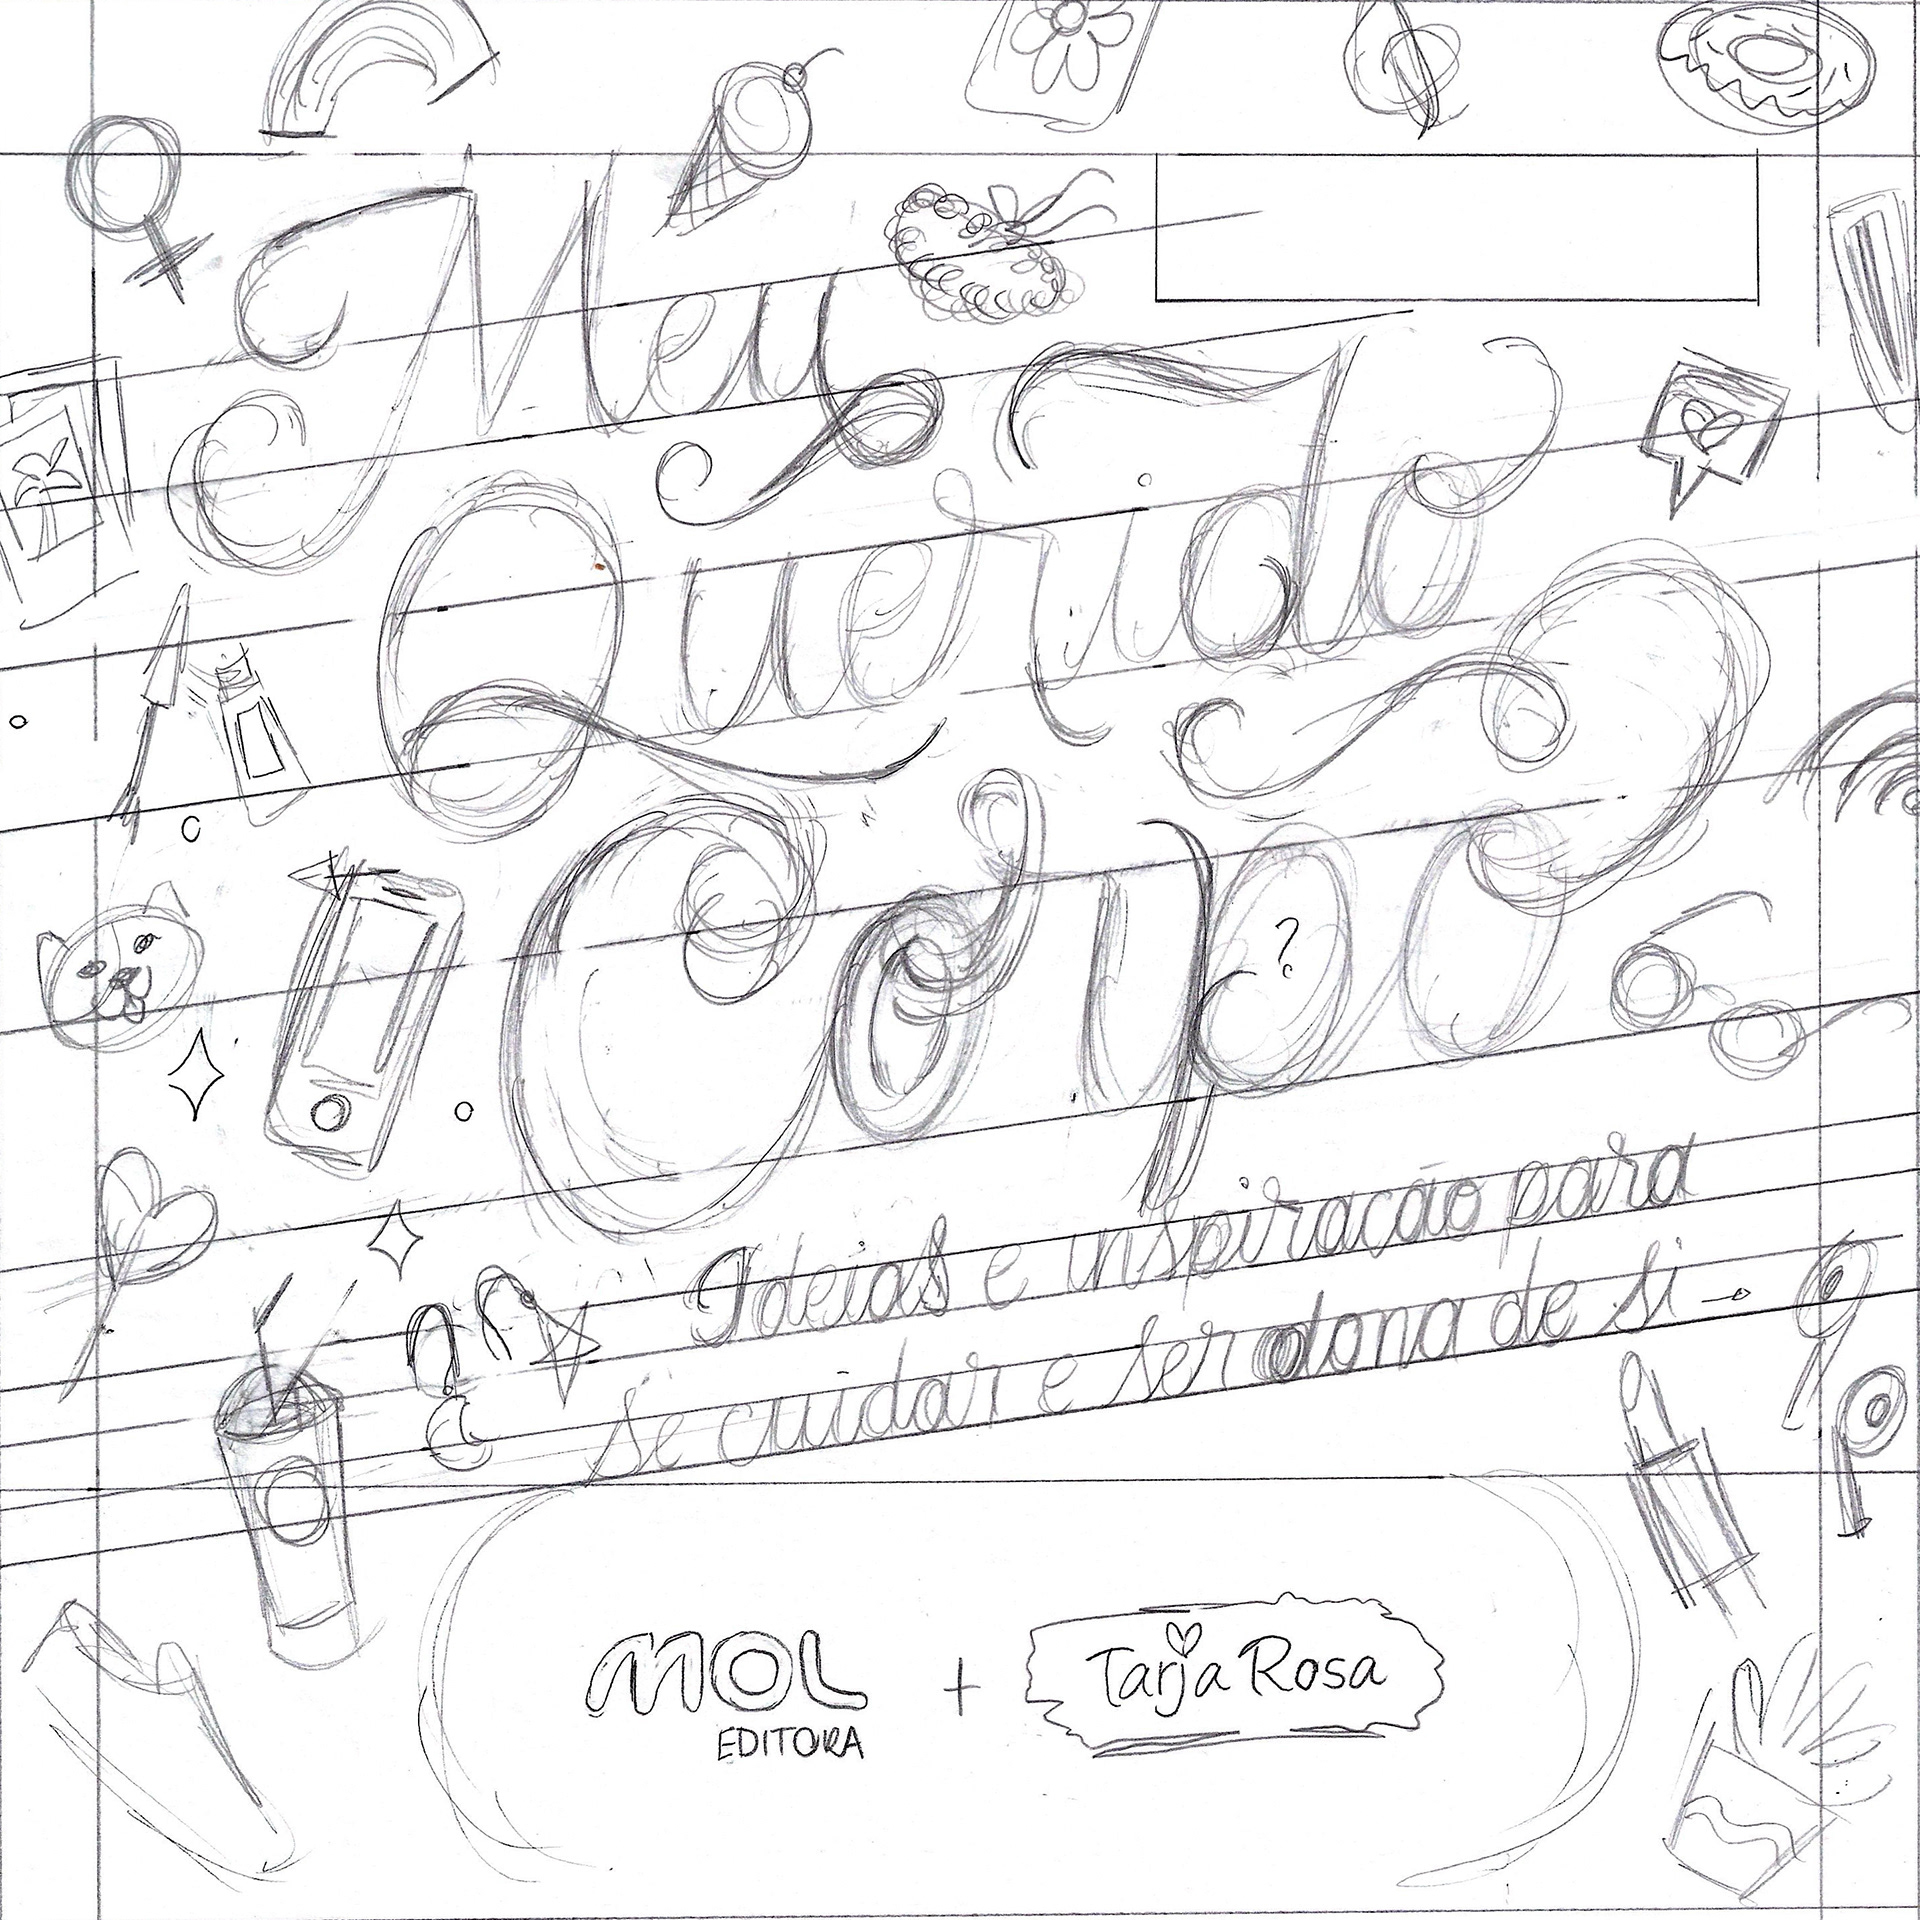 Meu
Querido
Corpo
?
Ideias e inspiração para
se cuidar e ser dona de si
MOL
EDITORA
+
Tarja Rosa